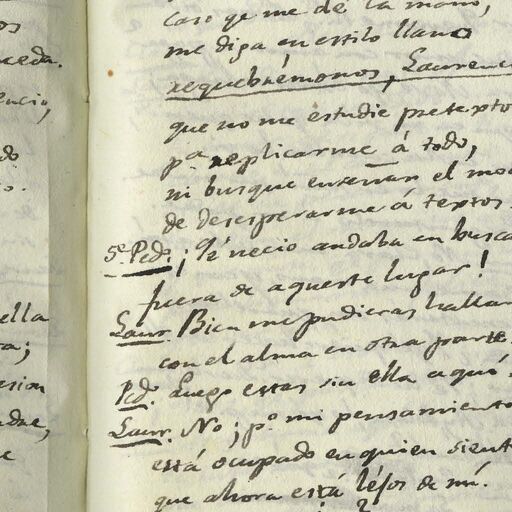 os
ceda.
encio,
do
o.
ella
ra;
esion
adre,
e
caso qe me dé la mano,
me diga en estilo llano
requebrémonos, Laurenc
que no me estudie pretexto
pa replicarme á todo,
ni busque enseñar el mo
de desesperarme á textos.
5e Pedo. ¡Qé necio andaba en busca
fuera de aqueste lugar!
Laur. Bien me pudieras hallar
con el alma en otra parte.
Pedo. Luego estás sin ella aquí.
Laur. No; po mi pensamiento
está ocupado en quien sient
que ahora está léjos de mí.